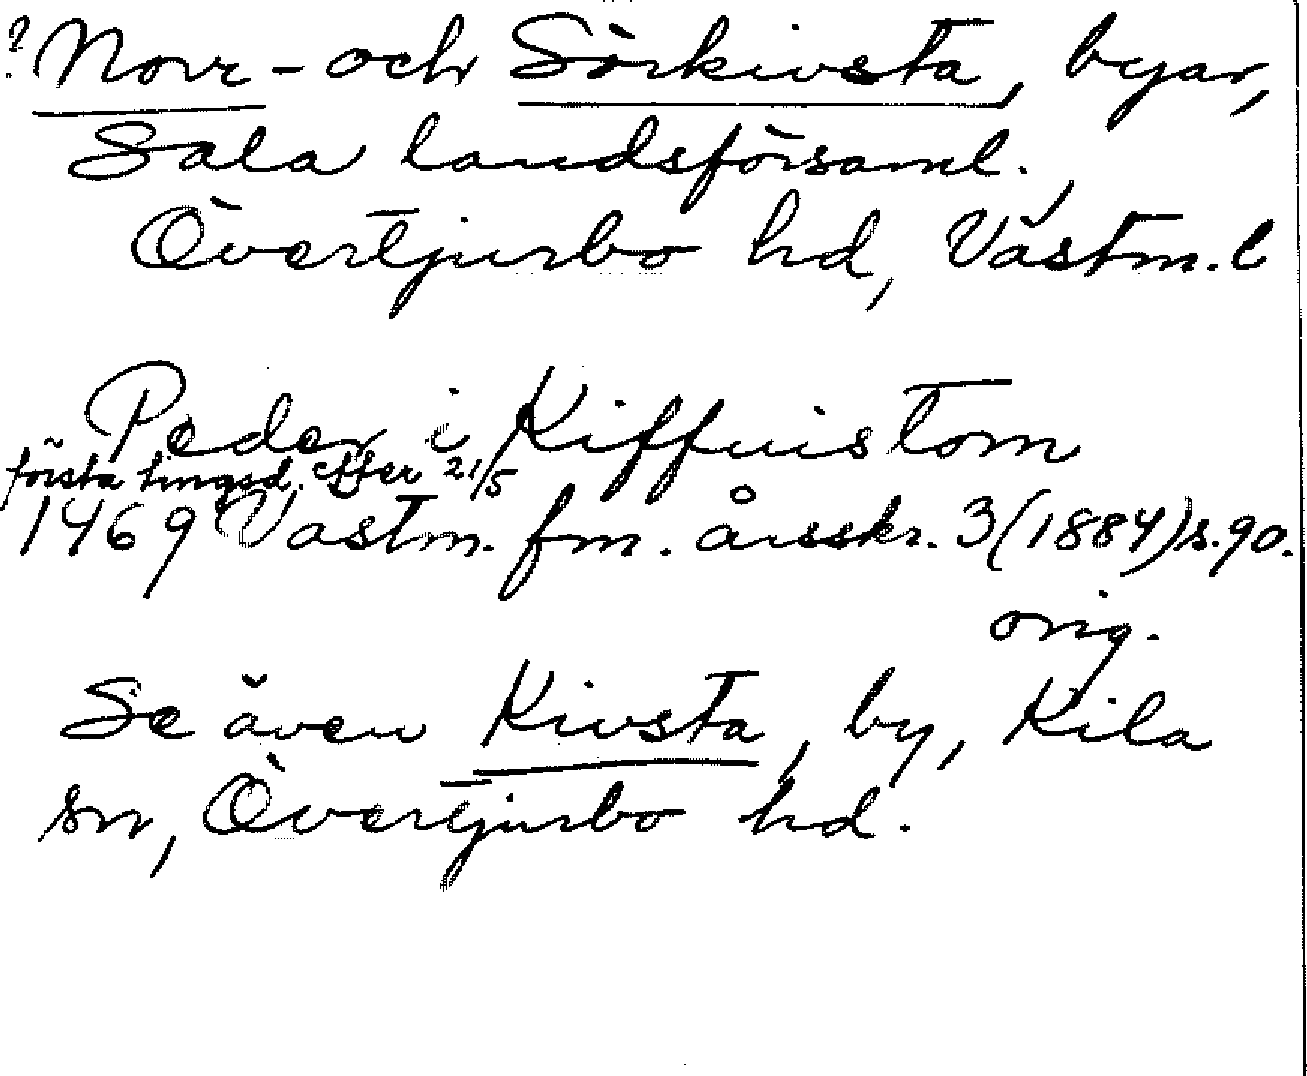 ? Norr- och Sörkivsta, byar,
Sala landsförsaml.,
Övertjurbo hd, Västm. l
Peder i Kiffuistom
första tingsd. efter 21/5
1469 Västm. fm. årsskr. 3 (1884) s. 90.
orig.
Se även Kivsta, by, Kila
sn, Övertjurbo hd.